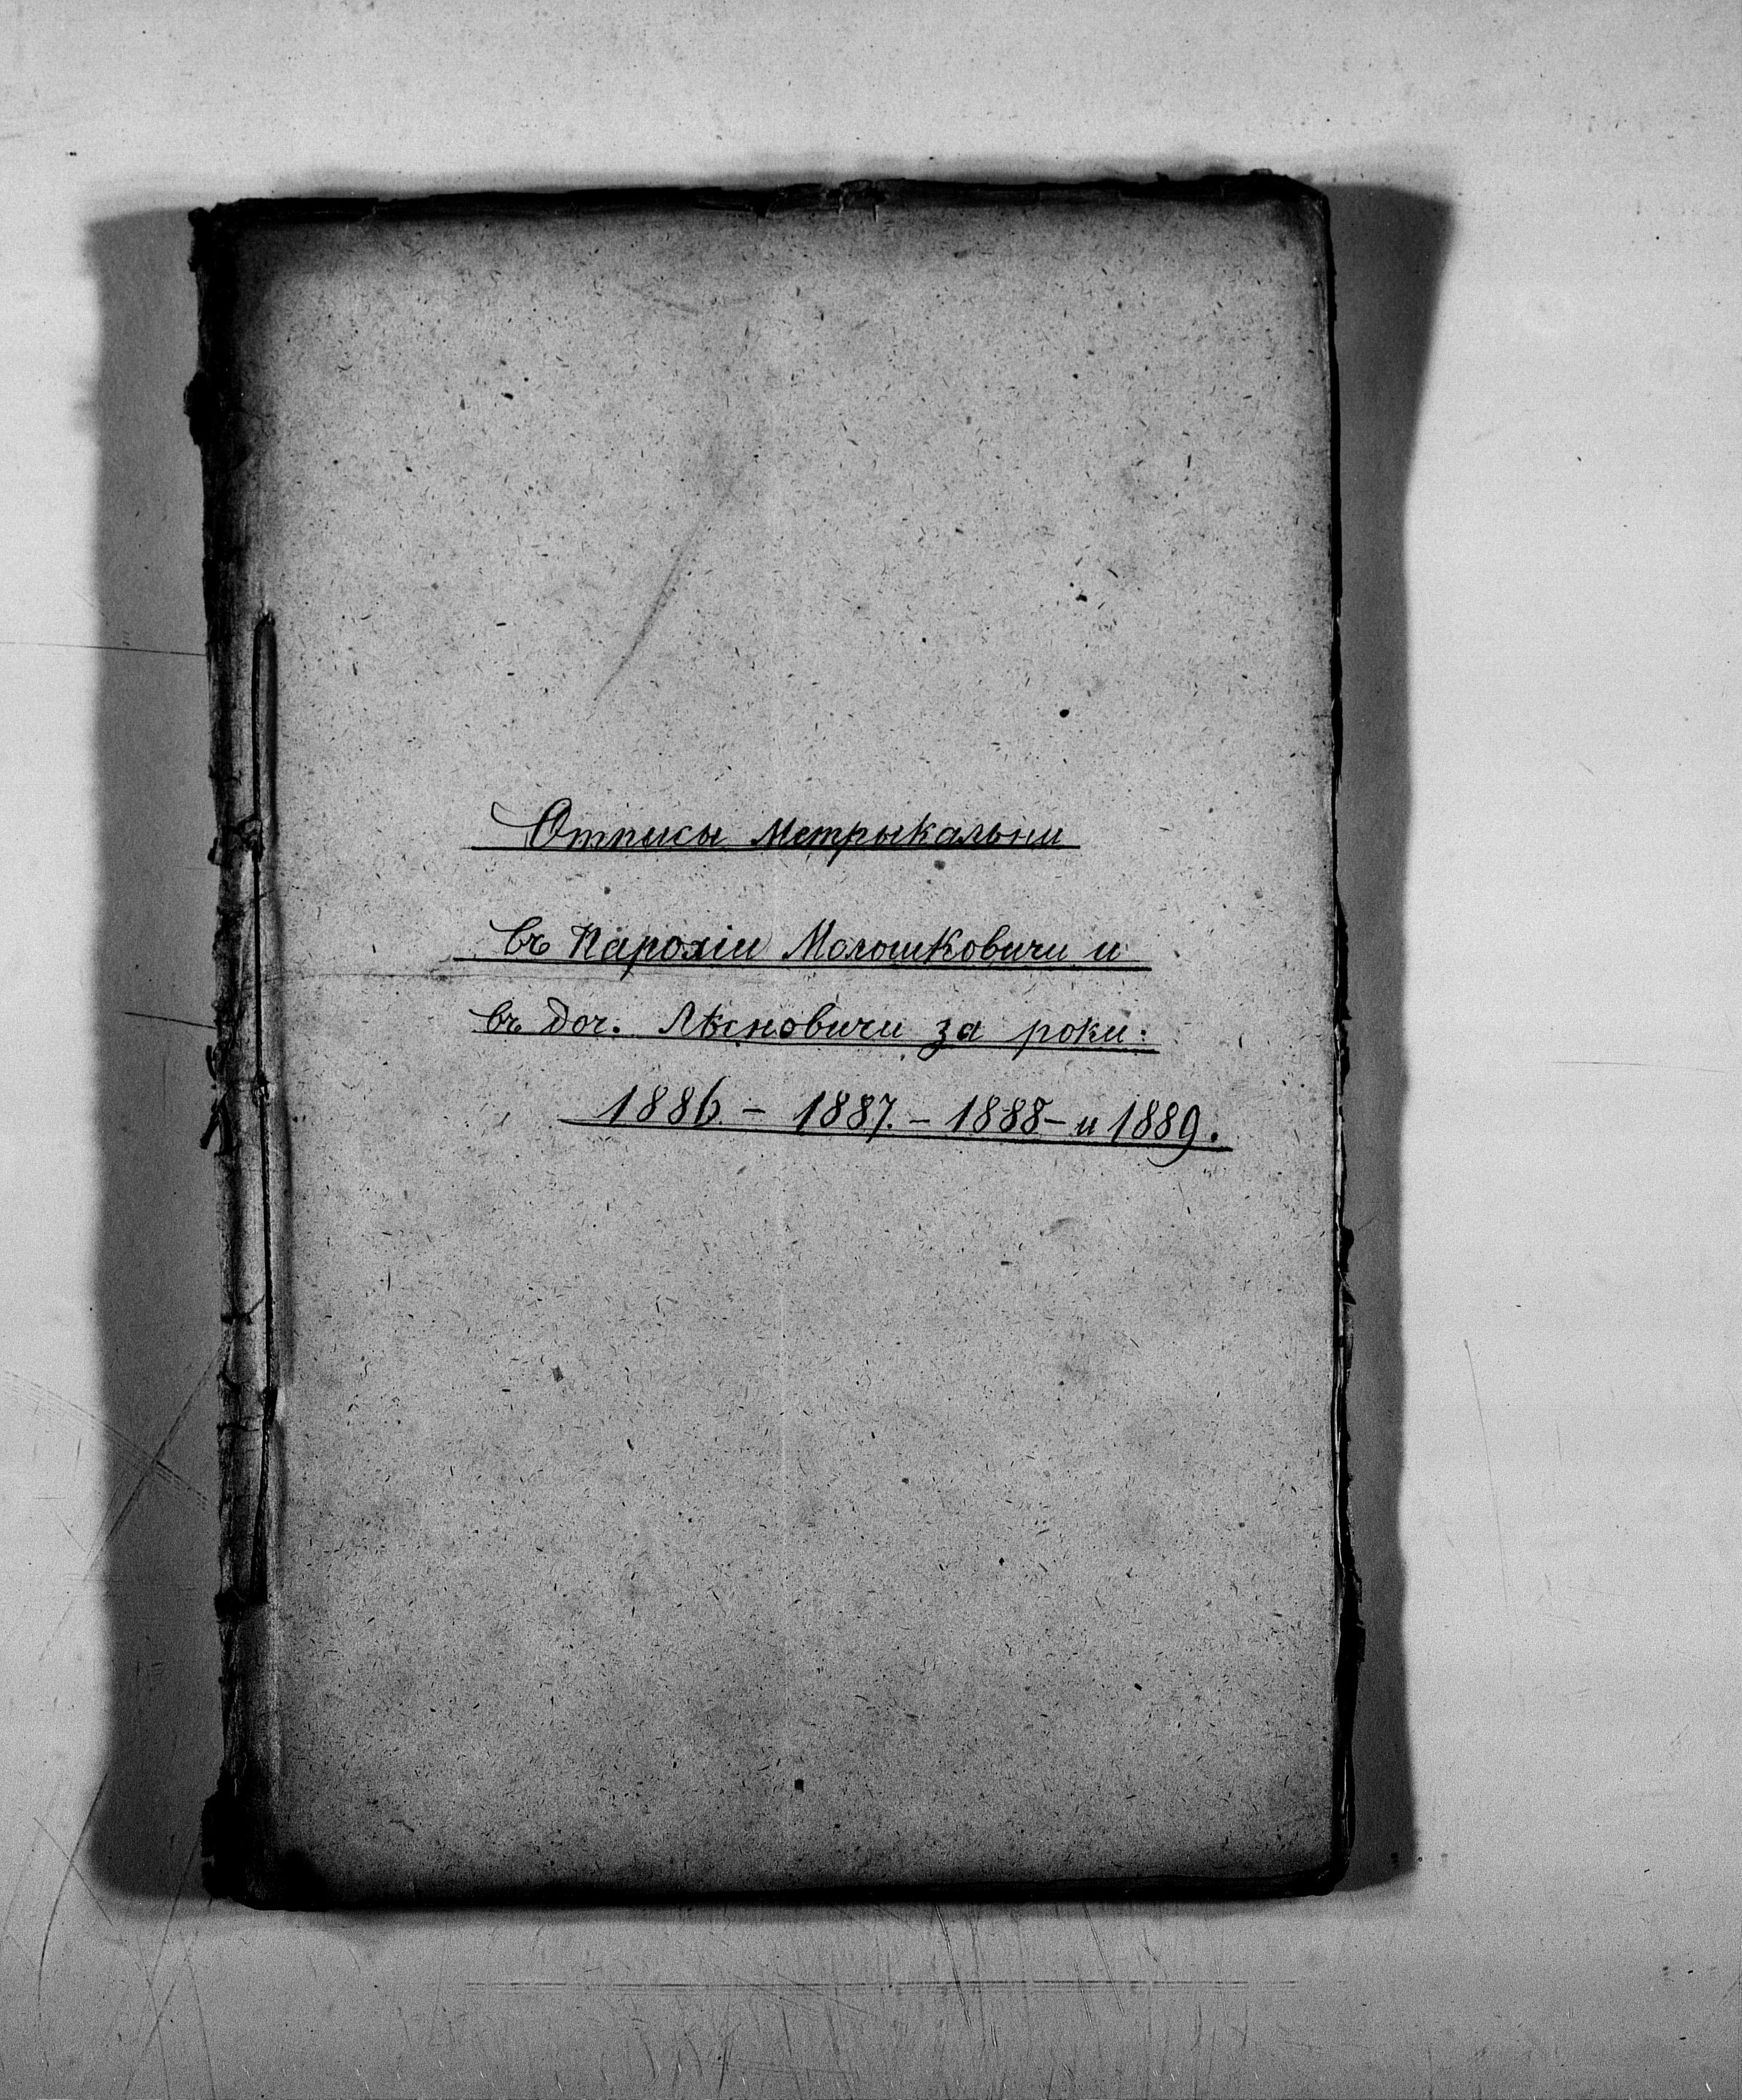 Отписы метрыкальни
въ Парохіи Молошковичи и
въ доч. Лѣсновичи за роки:
1886. – 1887. – 1888 – и 1889.